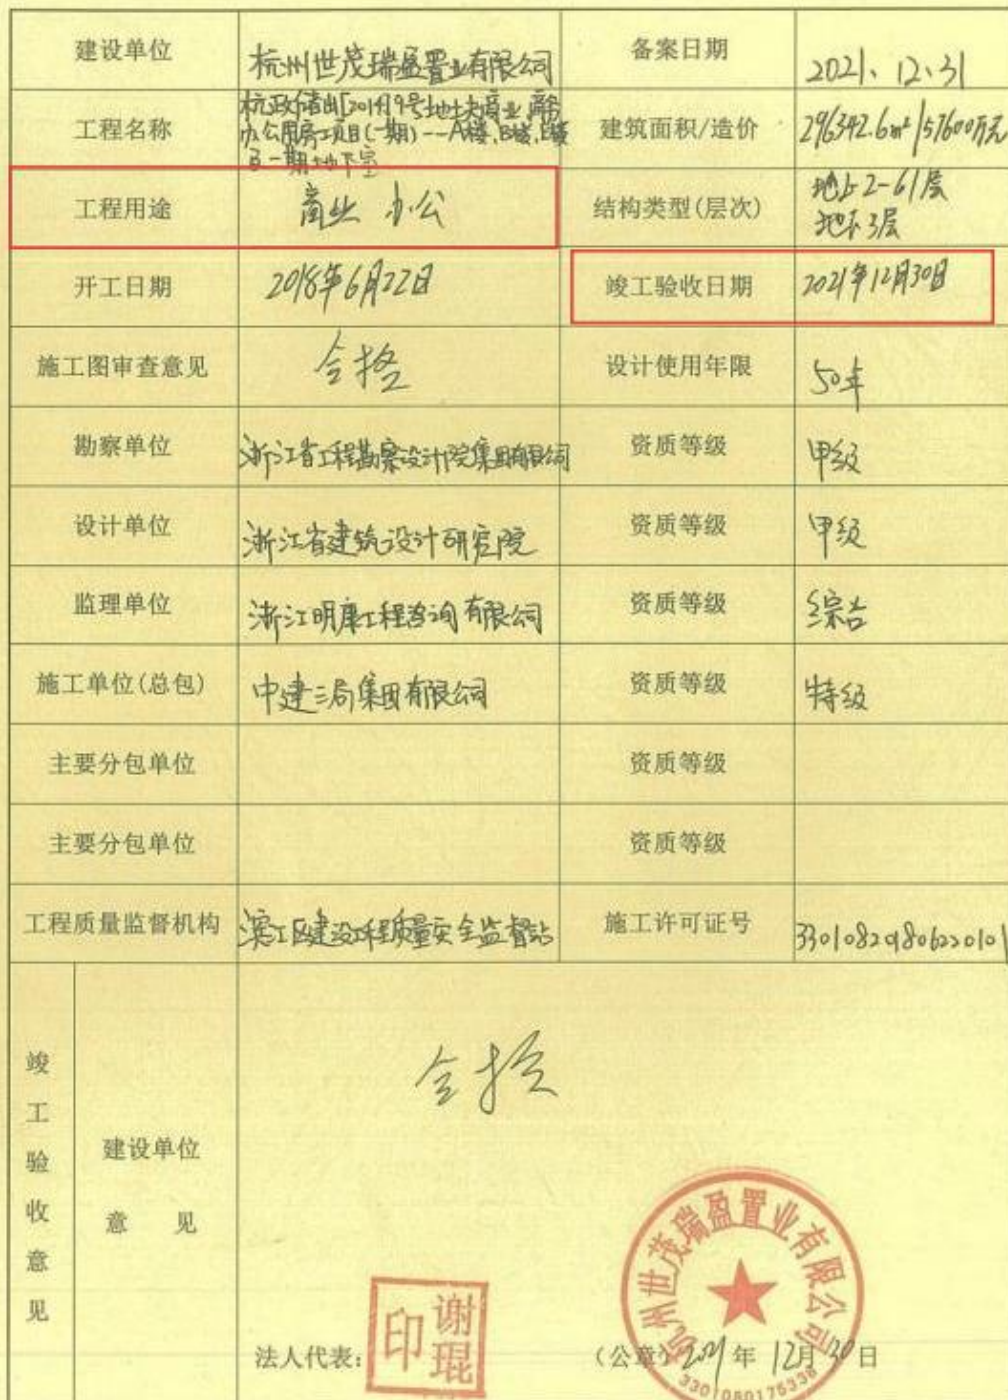 建设单位 杭州世茂瑞盈置业有限公司 备案日期 2021、12、31
工程名称 杭政储出[2014]9号地块商业商务
办公用房项目(一期)---A楼、B楼、E楼
及一期地下室
建筑面积/造价 296342.6m²/57600万元
工程用途 商业 办公 结构类型(层次) 地上2-61层
地下3层
开工日期 2018年6月22日 竣工验收日期 2021年12月30日
施工图审查意见 合格 设计使用年限 50年
勘察单位 浙江省工程勘察设计院集团有限公司 资质等级 甲级
设计单位 浙江省建筑设计研究院 资质等级 甲级
监理单位 浙江明康工程咨询有限公司 资质等级 综合
施工单位(总包) 中建三局集团有限公司 资质等级 特级
主要分包单位 资质等级
主要分包单位 资质等级
工程质量监督机构 滨江区建设工程质量安全监督站 施工许可证号 330108201806220101
竣工验收意见
建设单位
意 见
合格
杭州世茂瑞盈置业有限公司
3301080175338
谢琨印
法人代表: (公章) 2021年12月30日